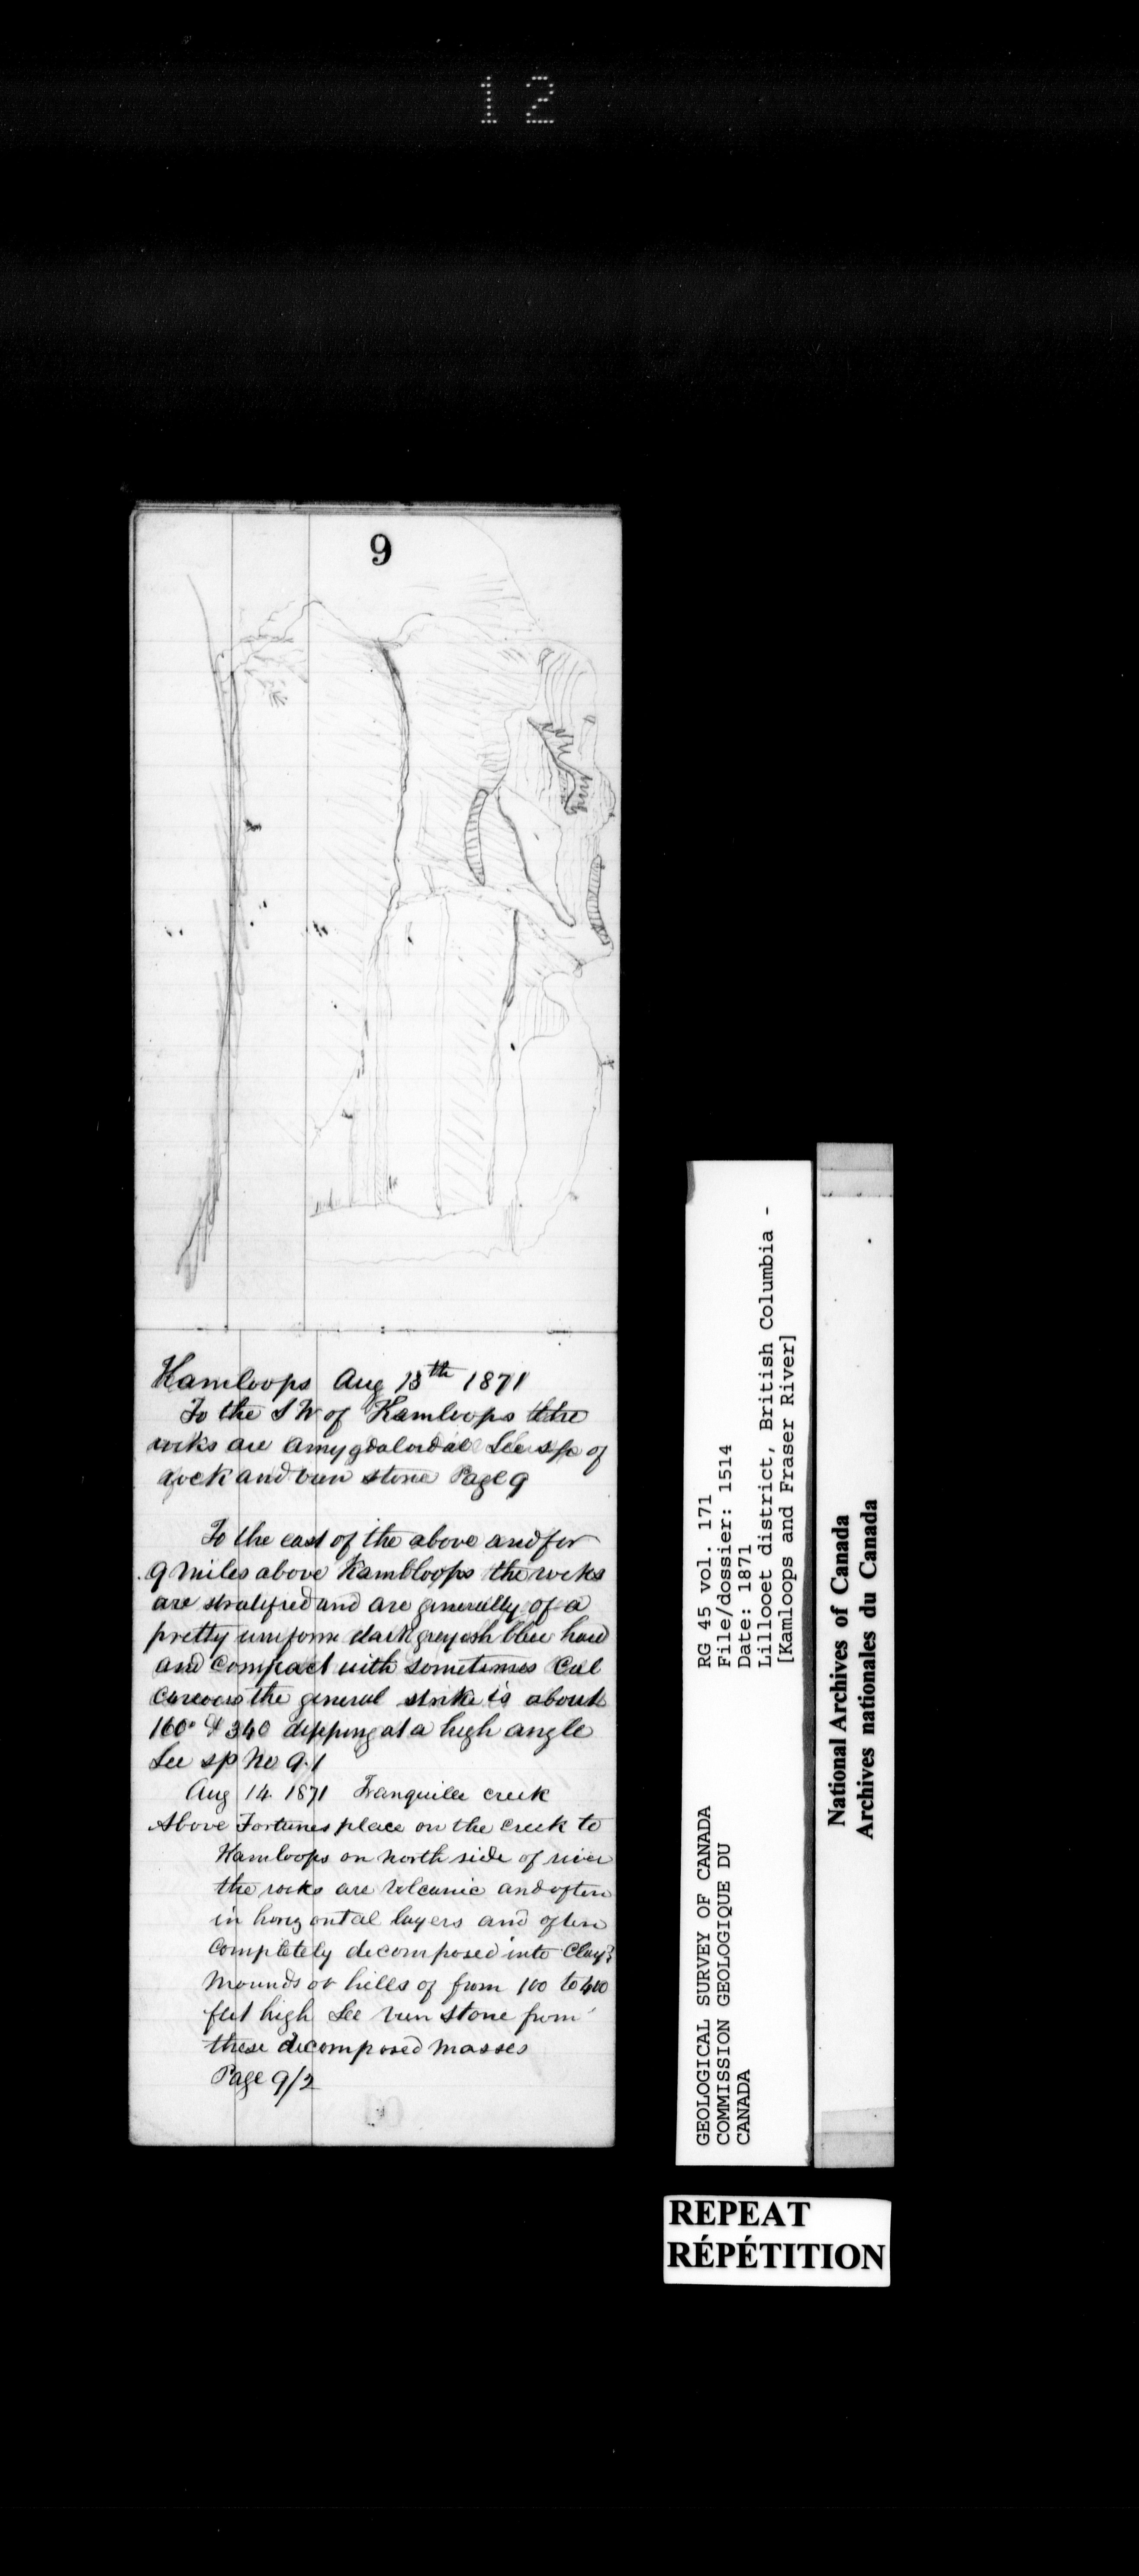 12
9
Kamloops Aug 13th 1871
To the S W of Kamloops the
rocks are amygdaloidal See sp of
rock and vein stone Page 9
To the east of the above and for
9 miles above Kambloops the rocks
are stratified and are generally of a
pretty uniform dark greyish blue hard
and compact with sometimes Cal
careous the general strike is about
160° & 340 dipping at a high angle
See sp No 9.1
Aug 14. 1871 Tranquille creek
Above Fortunes place on the creek to
Kamloops on north side of river
the rocks are volcanic and often
in horizontal layers and often
completely decomposed into Clay
mounds or hills of from 100 to 400
feet high See vein stone from
these decomposed masses
Page 9/2
GEOLOGICAL SURVEY OF CANADA
COMMISSION GEOLOGIQUE DU
CANADA
RG 45 vol. 171
File/dossier: 1514
Date: 1871
Lillooet district, British Columbia -
[Kamloops and Fraser River]
National Archives of Canada
Archives nationales du Canada
REPEAT
RÉPÉTITION